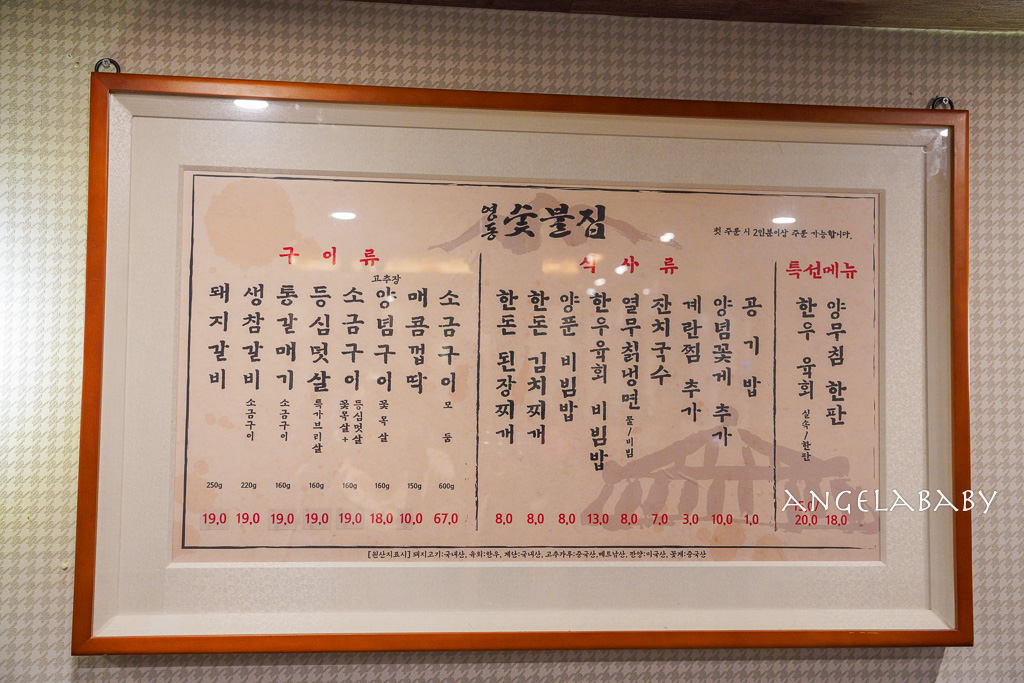 영동 숯불집
첫 주문 시 2인분이상 주문 가능합니다.
구이류
돼지갈비 250g 19,0
생참갈비 소금구이 220g 19,0
통갈매기 소금구이 160g 19,0
등심덧살 특가브리살 160g 19,0
소금구이 꽃목살+ 등심덧살 160g 19,0
고추장
양념구이 꽃목살 160g 18,0
매콤껍딱 150g 10,0
소금구이 모둠 600g 67,0
식사류
한돈 된장찌개 8,0
한돈 김치찌개 8,0
양푼 비빔밥 8,0
한우육회 비빔밥 13,0
열무칡냉면 물/비빔 8,0
잔치국수 7,0
계란찜 추가 3,0
양념꽃게 추가 10,0
공기밥 1,0
특선메뉴
한우 육회 실속/한판 15,0/ 20,0
양무침 한판 18,0
[원산지표시] 돼지고기:국내산, 육회:한우, 계란:국내산, 고추가루:중국산,베트남산, 깐양:미국산, 꽃게:중국산
ANGELABABY